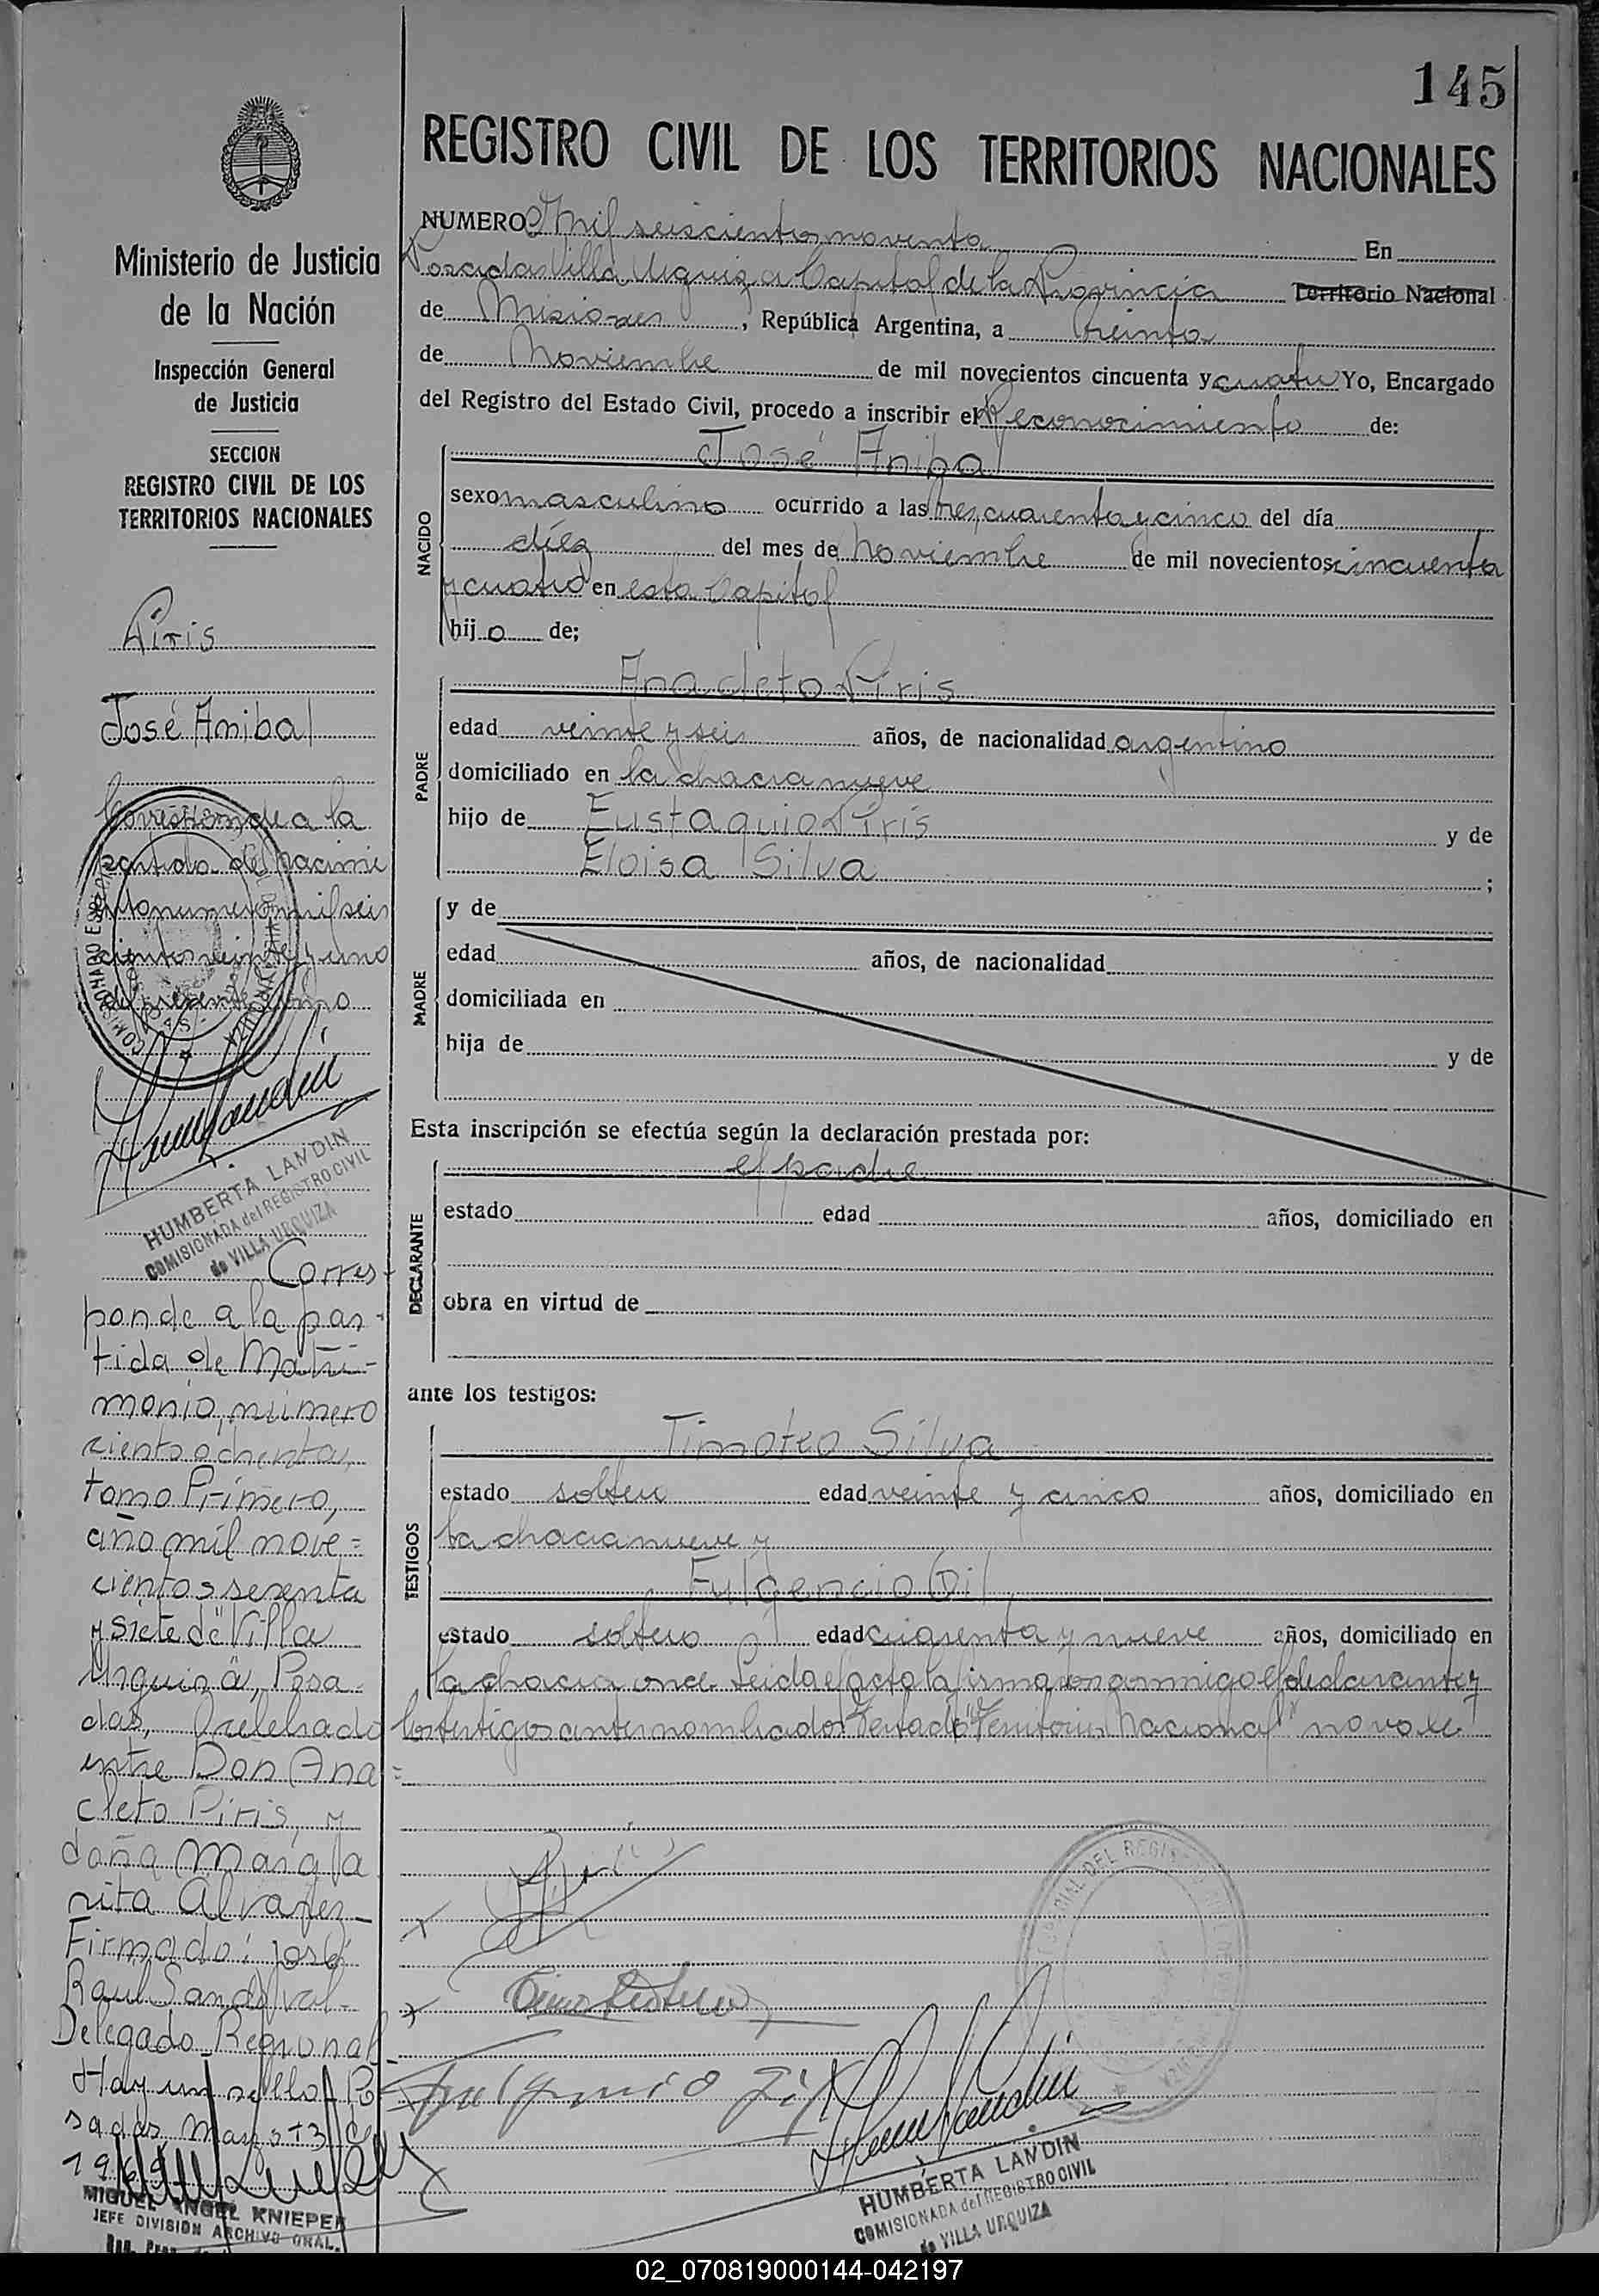 145
REGISTRO CIVIL DE LOS TERRITORIOS NACIONALES
NUMERO Mil seiscientos noventa En
Posadas Villa Urquiza Capital de la Provincia Territorio Nacional
de Misiones, República Argentina, a treinta
de Noviembre de mil novecientos cincuenta y cuatro Yo, Encargado
del Registro del Estado Civil, procedo a inscribir el Reconocimiento de:
NACIDO
José Anibal
sexo masculino ocurrido a las tres, cuarenta y cinco del día
diéz del mes de Noviembre de mil novecientos cincuenta
y cuatro en esta Capital
hijo de;
PADRE
Anacleto Piris
edad veinte y seis años, de nacionalidad argentino
domiciliado en la chacra nueve
hijo de Eustaquio Piris y de
Eloisa Silva ;
MADRE
y de
edad años, de nacionalidad
domiciliada en
hija de y de
Esta inscripción se efectúa según la declaración prestada por:
DECLARANTE
el padre
estado edad años, domiciliado en
obra en virtud de
ante los testigos:
TESTIGOS
Timoteo Silva
estado soltero edad veinte y cinco años, domiciliado en
la chacra nueve y
Fulgencio Gil
estado soltero edad cuarenta y nueve años, domiciliado en
la chacra once. Leida el acta la firmaron conmigo el declarante y
los testigos antes nombrados Testado "Territorio Nacional" no vale
Fulgencio Gil
HUMBERTA LANDIN
COMISIONADA del REGISTRO CIVIL
de VILLA URQUIZA
Ministerio de Justicia
de la Nación
Inspección General
de Justicia
SECCION
REGISTRO CIVIL DE LOS
TERRITORIOS NACIONALES
Piris
José Anibal
Corresponde a la
partida de nacimi
ento numero mil seis
cientos veinte y uno
del presente año
HUMBERTA LANDIN
COMISIONADA del REGISTRO CIVIL
de VILLA URQUIZA
Corres-
ponde a la par-
tida de Matri-
monio, número
ciento ochenta,
tomo Primero,
año mil nove=
cientos sesenta
y siete de "Villa
Urquiza", Posa-
das, Celebrado
entre Don Ana=
cleto Piris, y
doña Marga
rita Alvarez_
Firmado: José
Raul Sandoval-
Delegado Regional-
Hay un sello- Po
sadas, Marzo 13 de
196
MIGUEL ANGEL KNIEPER
JEFE DIVISION ARCHIVO GRAL.
02_070819000144-042197